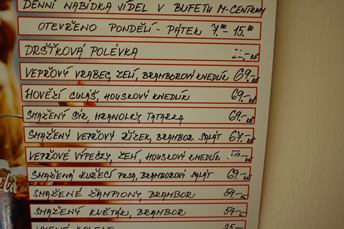 DENNÍ NABÍDKA JÍDEL V BUFETU M-CENTRUM
OTEVŘENO PONDĚLÍ - PÁTEK 7.00 - 15.00
DRŠŤKOVÁ POLÉVKA
VEPŘOVÝ VRABEC, ZELÍ, BRAMBOROVÝ KNEDLÍK 69.-Kč
HOVĚZÍ GULÁŠ, HOUSKOVÝ KNEDLÍK 69.-Kč
SMAŽENÝ SÝR, HRANOLKY, TATARKA 69.-Kč
SMAŽENÝ VEPŘOVÝ ŘÍZEK, BRAMBOR SALÁT 69.-Kč
VEPŘOVÉ VÝPEČKY, ZELÍ, HOUSKOVÝ KNEDLÍK
SMAŽENÁ KUŘECÍ PRSA, BRAMBOROVÝ SALÁT 69.-Kč
SMAŽENÉ ŽAMPIONY, BRAMBOR 59.-Kč
SMAŽENÝ KVĚTÁK, BRAMBOR 59.-Kč
KOLENO